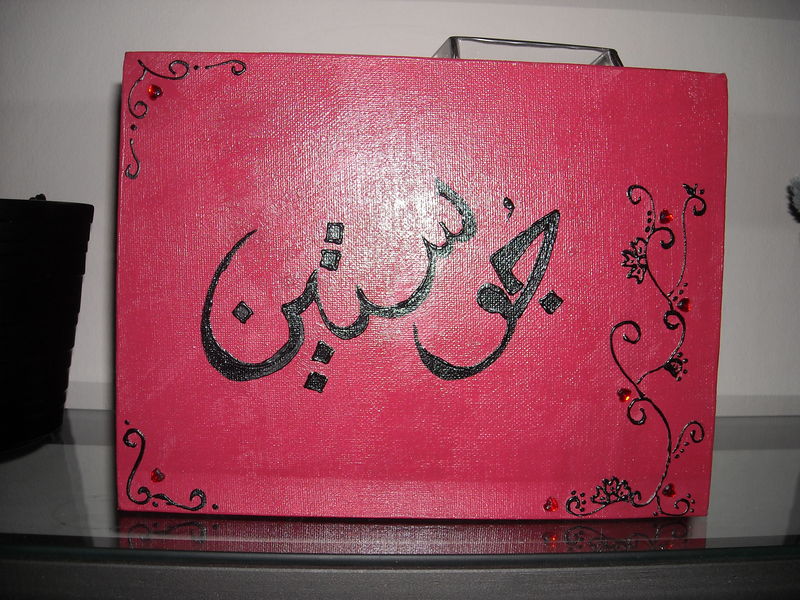 جُوستين